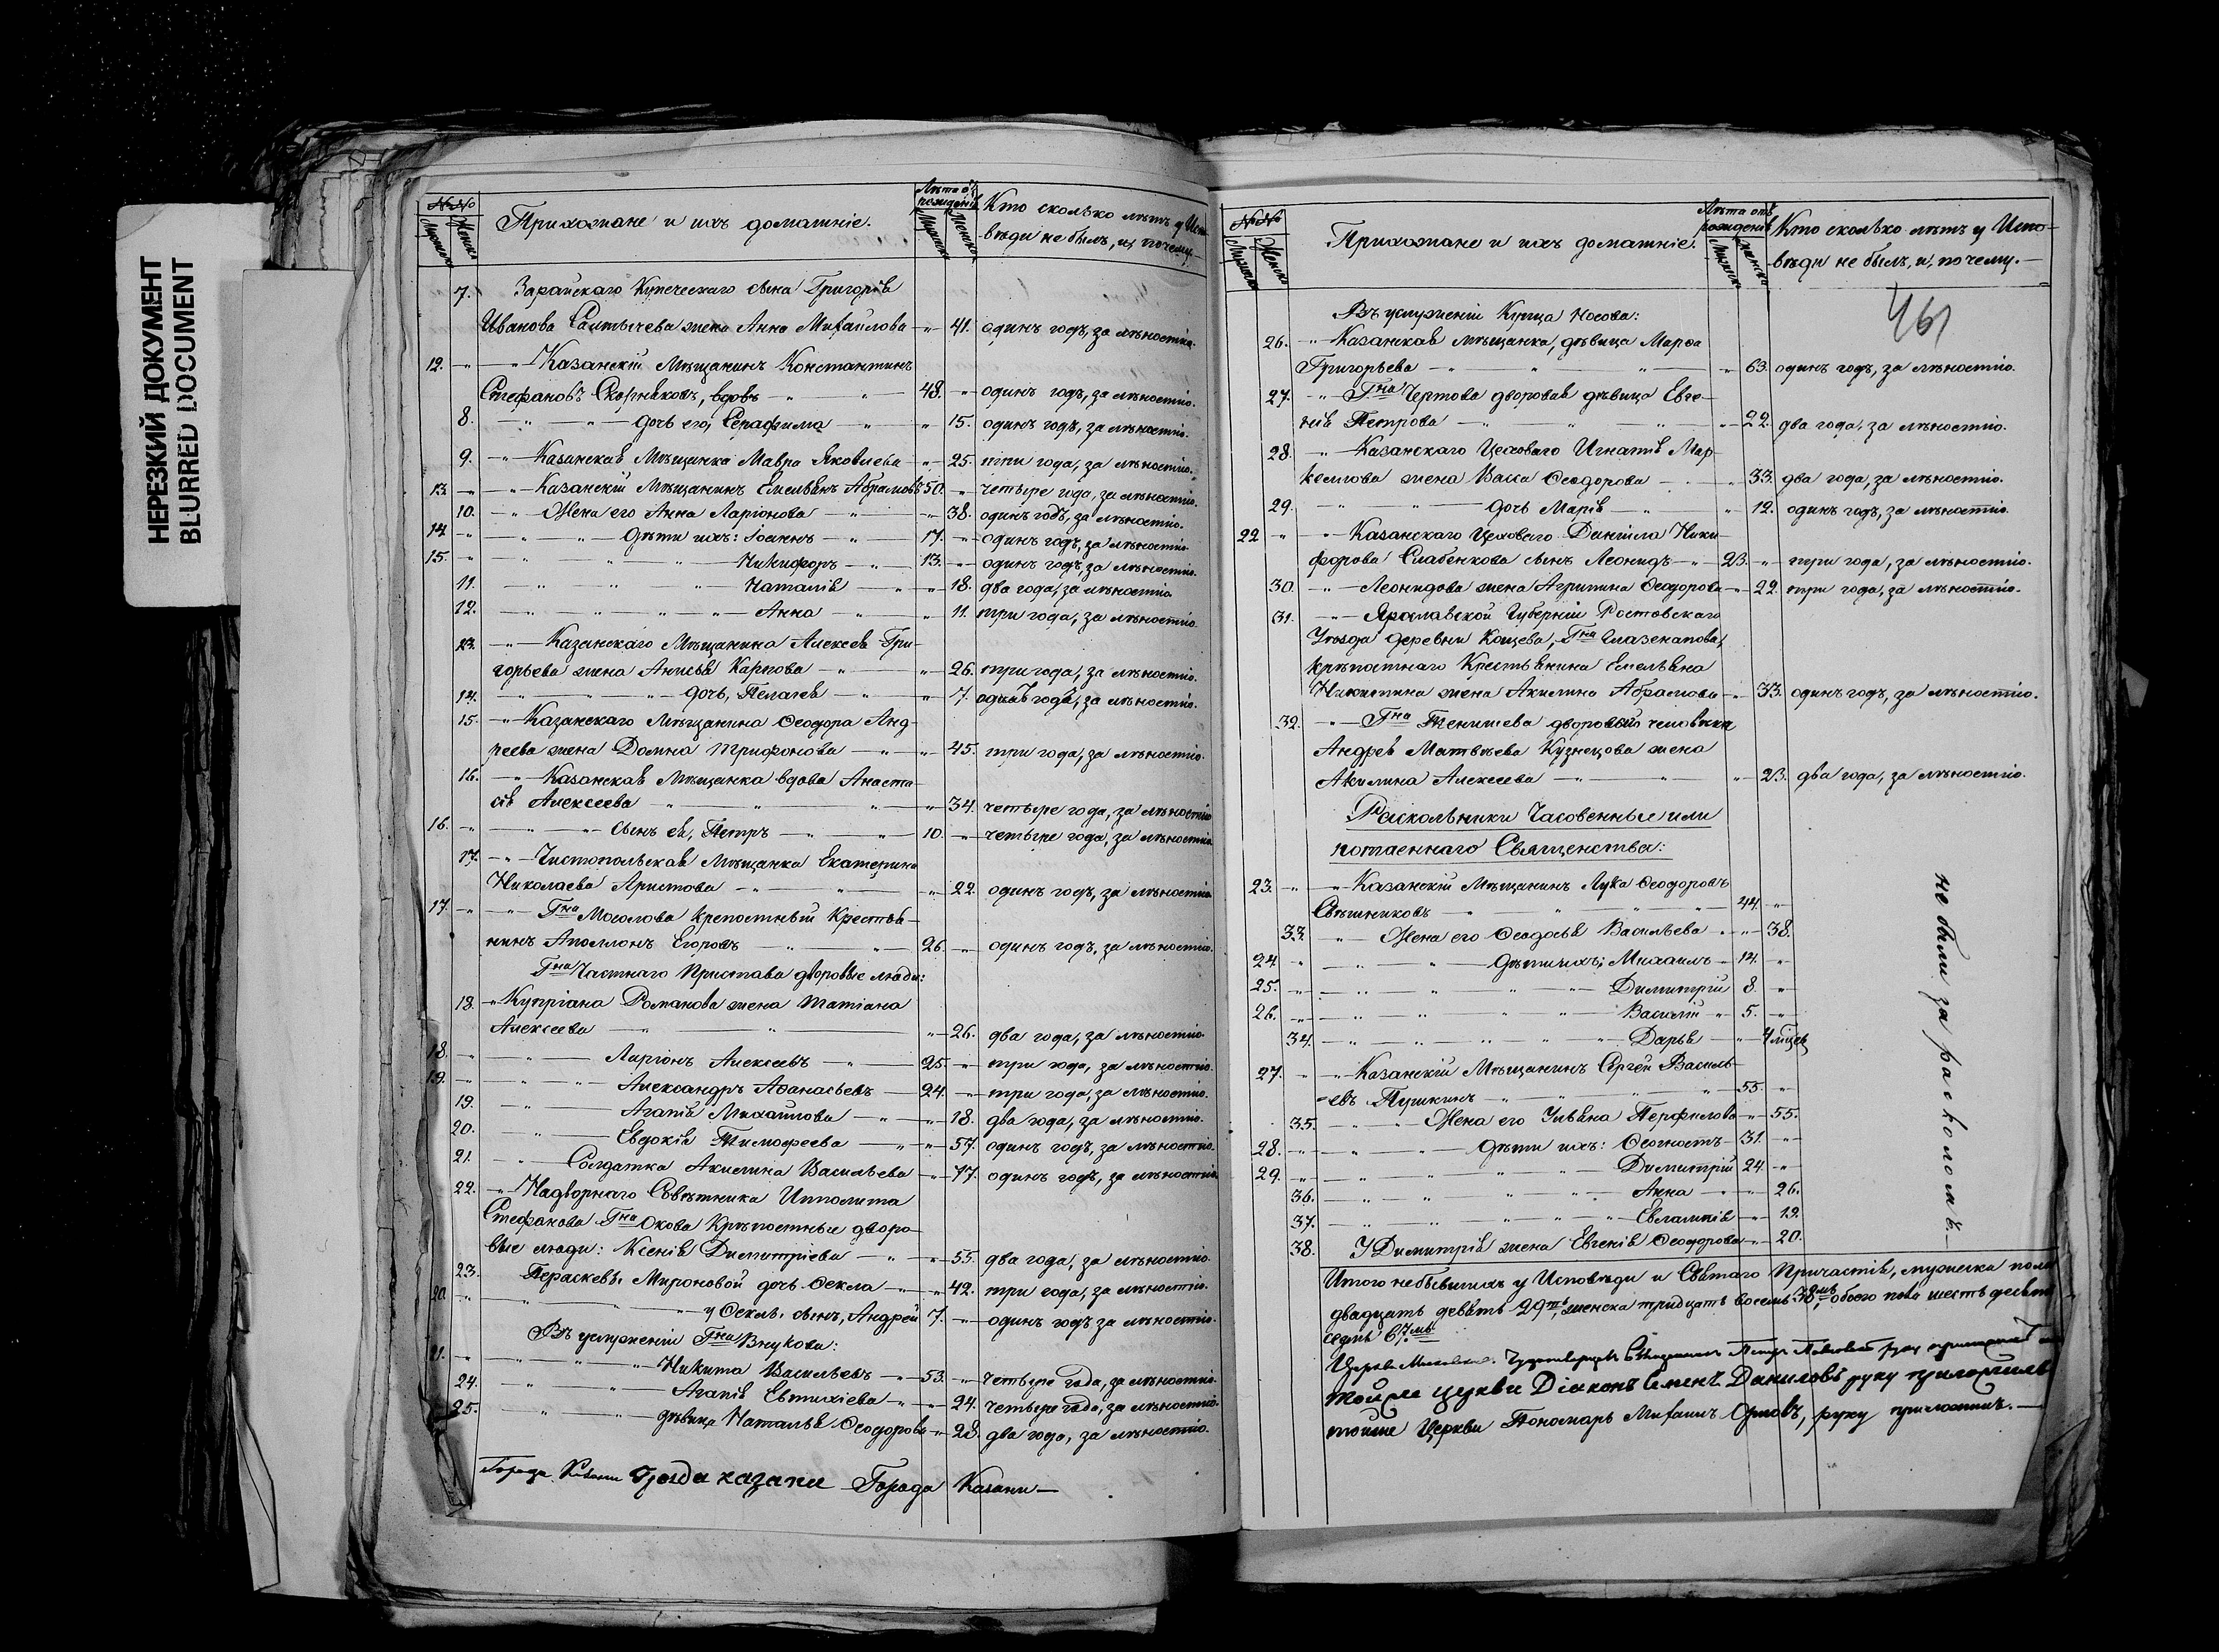 НЕРЕЗКИЙ ДОКУМЕНТ
BLURRED DOCUMENT
№№ Прихожане и ихъ домашніе. Лѣта отъ рожденія Кто сколько лѣтъ у Испо-
Мужска Женска Мужска Женска вѣди не былъ, и, почему.
7. Зарайскаго Купеческаго сына Григорія
Иванова жена Анна Михайлова — „ — 41. одинъ годъ, за лѣностію.
12. — „ — Казанскій Мѣщанинъ Константинъ
Стефановъ Скорняковъ, вдовъ — „ — 48. — „ — одинъ годъ, за лѣностію.
8. — „ — дочь его, Серафима — „ — 15. одинъ годъ, за лѣностію.
9. — „ — Казанская Мѣщанка Мавра Яковлева — „ — 25. три года, за лѣностію.
13. — „ — Казанскій Мѣщанинъ Емельянъ Абрамовъ 50. — „ — четыре года, за лѣностію.
10. — „ — Жена его Анна Ларіонова — „ — 38. одинъ годъ, за лѣностію.
14. — „ — Дѣти ихъ: Іоаннъ — „ — 17. — „ — одинъ годъ, за лѣностію.
15. — „ — Никифоръ — „ — 13. — „ — одинъ годъ, за лѣностію.
11. — „ — Наталія — „ — 18. два года, за лѣностію.
12. — „ — Анна — „ — 11. три года, за лѣностію.
13. — „ — Казанскаго Мѣщанина Алексея Гри-
горьева жена Анисья Карпова — „ — 26. три года, за лѣностію.
14. — „ — дочь, Пелагея — „ — 7. за лѣностію.
15. — „ — Казанскаго Мѣщанина Ѳеодора Анд-
реева жена Домна Трифонова — „ — 45. три года, за лѣностію.
16. — „ — Казанская Мѣщанка вдова Анаста-
сія Алексеева — „ — 34. четыре года, за лѣностію
16. — „ — сынъ ея, Петръ — „ — 10. — „ — четыре года, за лѣностію.
17. — „ — Чистопольская Мѣщанка Екатерина
Николаева Аристова — „ — 22. одинъ годъ, за лѣностію.
17. — „ — Гна Крепостный Крестья-
нинъ Аполлонъ Егоровъ — „ — 26. — „ — одинъ годъ, за лѣностію.
Гна Частнаго Пристава дворовые люди:
18. „ Купріана Романова жена Татіана
Алексеева — „ — 26. два года, за лѣностію.
18. — „ — Ларіонъ Алексеевъ — „ — 25. — „ — три года, за лѣностію.
19. — „ — Александръ Аѳанасьевъ — 24. — „ — три года, за лѣностію.
19. — „ — Агапія Михайлова — „ — 18. два года, за лѣностію.
20. — „ — Евдокія Тимофеева — „ — 57. одинъ годъ, за лѣностію.
21. — „ — Солдатка Акилина Васильева — „ — 77. одинъ годъ, за лѣностію.
22. — „ Надворнаго Совѣтника Ипполита
Стефанова Гна Окова Крѣпостные дворо-
вые люди: Ксенія Димитріева — „ — 55. два года, за лѣностію.
23. Параскевы Мироновой дочь Ѳекла — „ — 42. три года, за лѣностію.
20. — „ — у Ѳеклы сынъ, Андрей 7. — „ — одинъ годъ за лѣностію.
Въ услуженіи Гна Внукова:
21. — „ — Никита Васильевъ — „ — 53. — „ — четыре года, за лѣностію.
24. — „ — Агапія Евтихіева — „ — 24. четыре года, за лѣностію.
25. — „ — дѣвица Наталья Ѳеодорова — „ — 28. два года, за лѣностію.
Города Казани града казани Города Казани —
№№ Прихожане и ихъ домашніе. Лѣта отъ рожденія Кто сколько лѣтъ у Испо-
Мужска Женска Мужска Женска вѣди не былъ, и, почему. —
461
Въ услуженіи Купца Носова:
26. — „ — Казанская Мѣщанка, дѣвица Марѳа
Григорьева — „ — 63. одинъ годъ, за лѣностію.
27. — „ — Гна Чертова дворовая дѣвица Евге-
нія Петрова — „ — 22. два года, за лѣностію.
28. — „ — Казанскаго Цеховаго Игнатія Мар-
келлова жена Васса Ѳеодорова — „ — 33. два года, за лѣностію.
29. — „ — дочь Марія — „ — 12. одинъ годъ, за лѣностію.
22 — „ — Казанскаго Цеховаго Даніила Ники-
форова Слабенкова сынъ Леонидъ — „ — 23. — „ три года, за лѣностію.
30. — „ — Леонидова жена Агрипина Ѳеодорова — „ — 22. три года, за лѣностію.
31. — „ — Ярославской Губерніи Ростовскаго
Уѣзда деревни Кощева, Гна Глазенапова,
крѣпостнаго Крестьянина Емельяна
Никитина жена Акилина Абрамова — „ — 33. одинъ годъ, за лѣностію.
32. — „ — Гна Тенишева дворовый человѣка
Андрея Матвѣева Кузнецова жена
Акилина Алексеева — „ — 23. два года, за лѣностію.
Раскольники Часовенные или
потаеннаго Священства:
23. — „ — Казанскій Мѣщанинъ Лука Ѳеодоровъ
Свѣшниковъ — „ — 44. — „
33. „ — Жена его Ѳеодосья Васильева — „ — 38.
24 — „ — дѣти ихъ; Михаилъ — 14. — „
25. — „ — Димитрій 8. — „
26. — „ — Василій — „ 5. — „
34. — „ — Дарья — „ — 4 мѣсяц
27. — „ — Казанскій Мѣщанинъ Сергѣй Василь-
евъ Пушкинъ — „ — 55. „
35. — „ — Жена его Ульяна Перфилова — „ — 55.
28. — „ — дѣти ихъ: Ѳеогностъ — 31. — „
29. — „ — Димитрій 24. — „
36. — „ — Анна — „ — 26.
37. — „ — Евлампія — „ — 19.
38. У Димитрія жена Евгенія Ѳеодорова — „ — 20.
не были за расколомъ.
Итого небывшихъ у Исповѣди и Святаго Причастія, мужеска пола
двадцать девять 29ть, женска тридцать восемь 38мь, обоего пола шесть десятъ
седмь 67мь
Священникъ Петръ руку приложилъ
тойже церкви Діаконъ Семенъ Даниловъ руку приложилъ
тойже Церкви Пономарь Михаилъ Орловъ, руку приложилъ. —